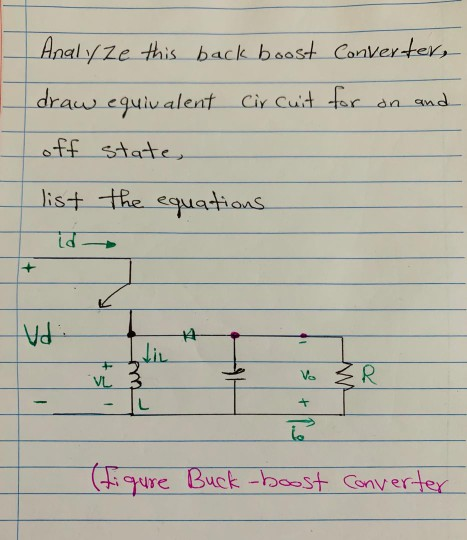 Analyze this back boost Converter,
draw equivalent circuit for on and
off state,
list the equations
id →
+
Vd
+
VL
-
↓iL
L
-
-
Vo
+
R
io
(Figure Buck-boost Converter